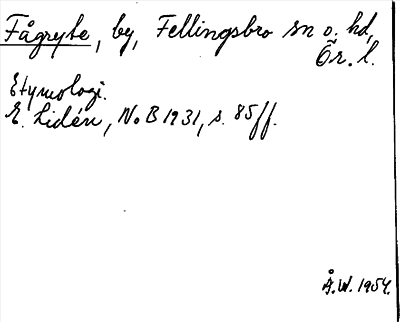 Fågrybe, by, Fellingsbro sn o. hd,
Ör. l.
Etymologi.
E. Lidén, NoB 1931, s. 85ff.
Å.W. 1954.